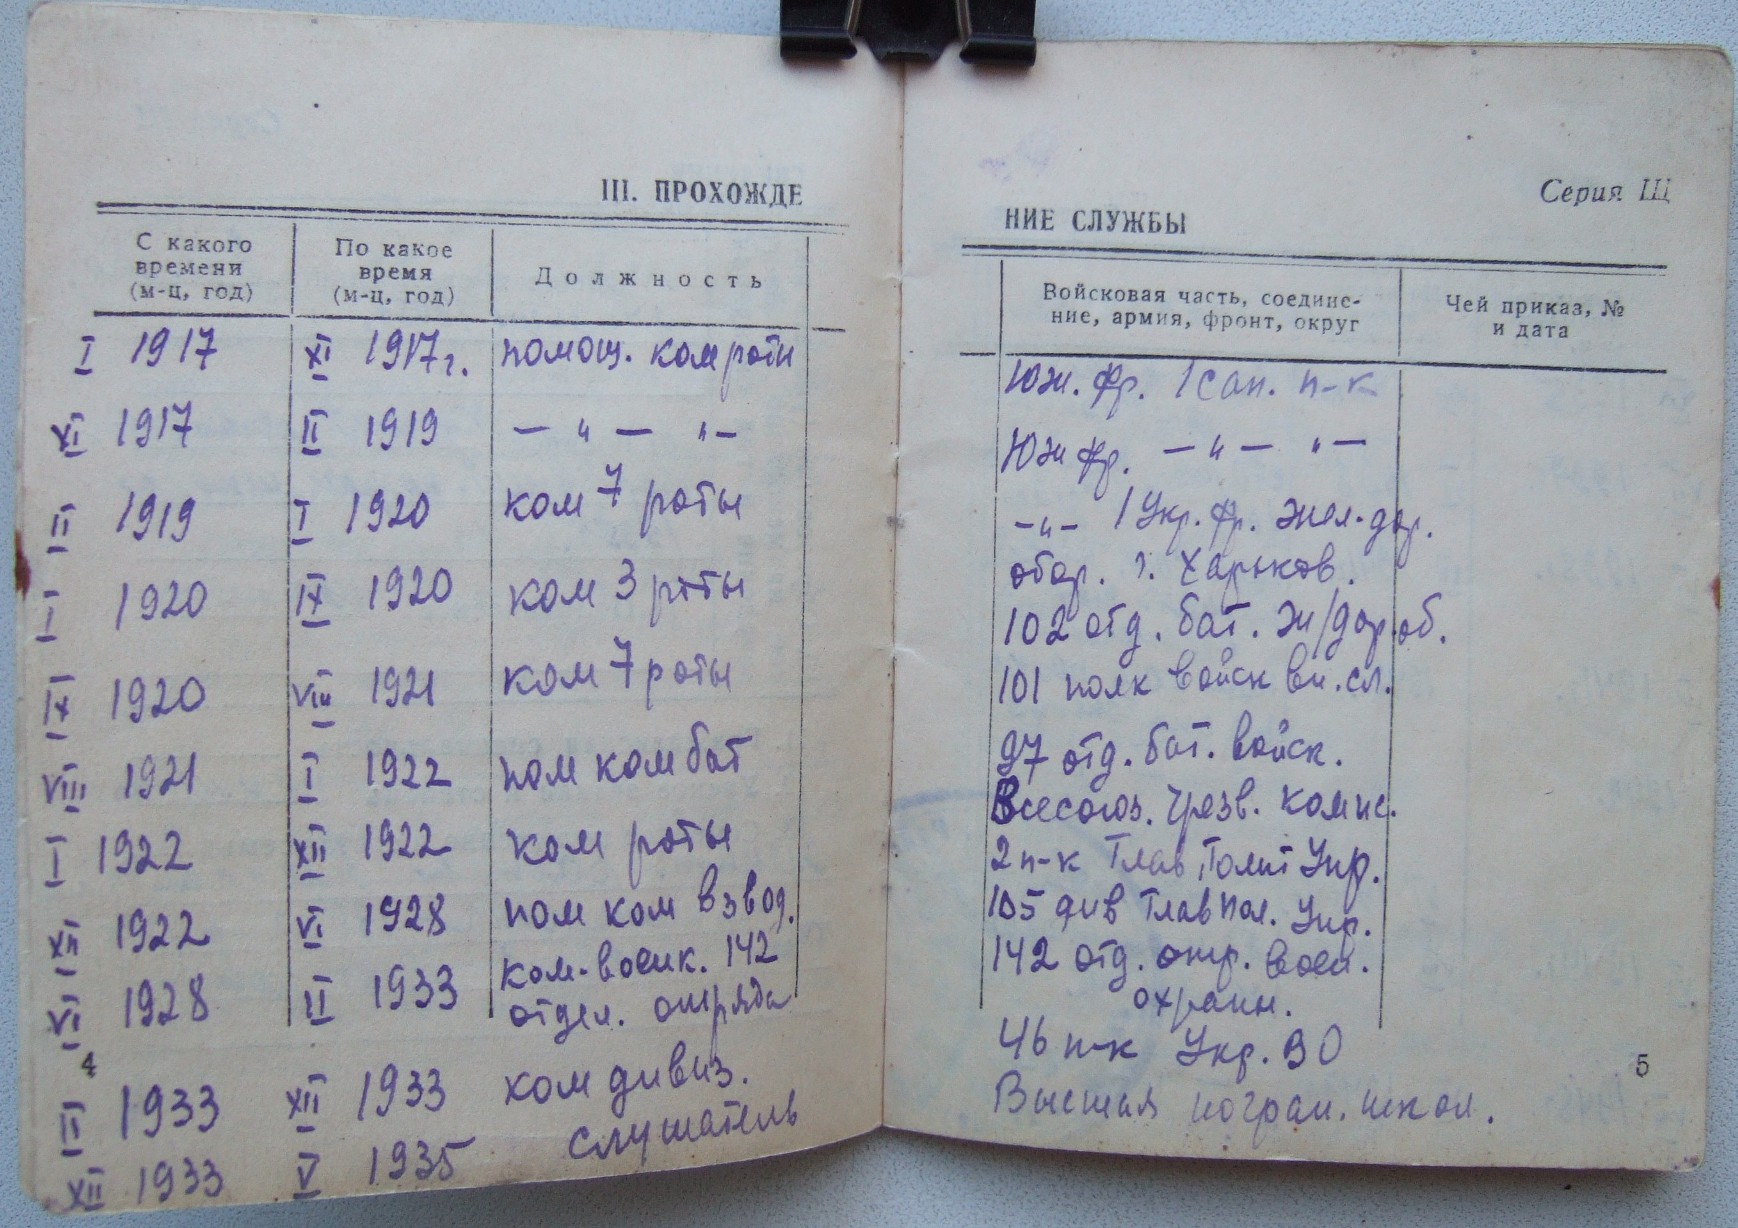 III. ПРОХОЖДЕ
С какого времени (м-ц, год)
По какое время (м-ц, год)
Должность
I 1917 XI 1917 г. помощ. ком роты
XI 1917 II 1919 — " — " —
II 1919 I 1920 ком 7 роты
I 1920 IX 1920 ком 3 роты
IX 1920 VIII 1921 ком 7 роты
VIII 1921 I 1922 пом ком бат
I 1922 XII 1922 ком роты
XII 1922 VI 1928 пом ком взвод.
VI 1928 II 1933 ком-военк. 142
отдел. отряда
4
II 1933 XII 1933 ком дивиз.
XII 1933 V 1935 слушатель
Серия Щ
НИЕ СЛУЖБЫ
Войсковая часть, соедине-
ние, армия, фронт, округ
Чей приказ, №
и дата
Юж. фр. 1 сап. п-к
Юж фр. — " — " —
— " — 1 Укр. фр. жел-дор.
обор. г. Харьков.
102 отд. бат. ж/дор.об.
101 полк войск вн.сл.
97 отд. бат. войск.
Всесоюз. Чрезв. комис.
2 п-к Глав Полит Упр.
105 див Глав Пол. Упр.
142 отд. отр. воен.
охраны.
46 п-к Укр. ВО
5
Высшая погран. школ.